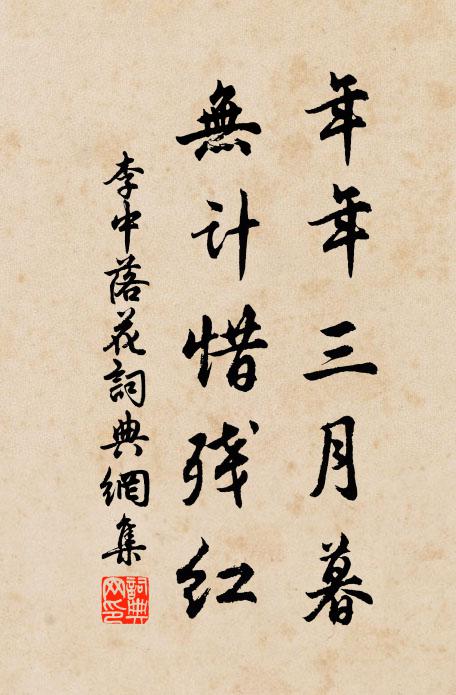 年年三月暮
無计惜残红
李中落花詞典網集
詞典
网印